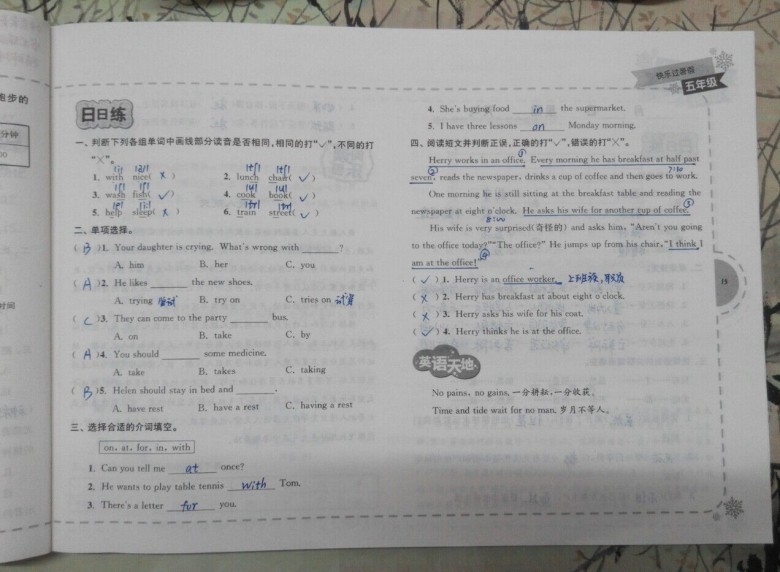 跑步的
分钟
快乐过暑假
五年级
日日练
一、判断下列各组单词中画线部分读音是否相同,相同的打“✓”,不同的打
“×”。
1. with nice( × ) 2. lunch chair( ✓ )
3. wash fish( ✓ ) 4. cook book( ✓ )
5. help sleep( × ) 6. train street( ✓ )
二、单项选择。
( B )1. Your daughter is crying. What's wrong with ______?
A. him B. her C. you
( A )2. He likes ______ the new shoes.
A. trying B. try on C. tries on
( C )3. They can come to the party ______ bus.
A. on B. take C. by
( A )4. You should ______ some medicine.
A. take B. takes C. taking
( B )5. Helen should stay in bed and ______.
A. have rest B. have a rest C. having a rest
三、选择合适的介词填空。
on, at, for, in, with
1. Can you tell me at once?
2. He wants to play table tennis with Tom.
3. There's a letter for you.
4. She's buying food in the supermarket.
5. I have three lessons on Monday morning.
四、阅读短文并判断正误,正确的打“✓”,错误的打“×”。
Herry works in an office. ① Every morning he has breakfast at half past
seven, ② reads the newspaper, drinks a cup of coffee and then goes to work.
7:30
One morning he is still sitting at the breakfast table and reading the
newspaper at eight o'clock. He asks his wife for another cup of coffee. ③
8:00
His wife is very surprised(奇怪的) and asks him, “Aren't you going
to the office today?”“The office?” He jumps up from his chair,“I think I
am at the office!” ④
( ✓ ) 1. Herry is an office worker. 上班族,职员
( × ) 2. Herry has breakfast at about eight o'clock.
( × ) 3. Herry asks his wife for his coat.
( ✓ ) 4. Herry thinks he is at the office.
15
英语天地
No pains, no gains. 一分耕耘,一分收获。
Time and tide wait for no man. 岁月不等人。